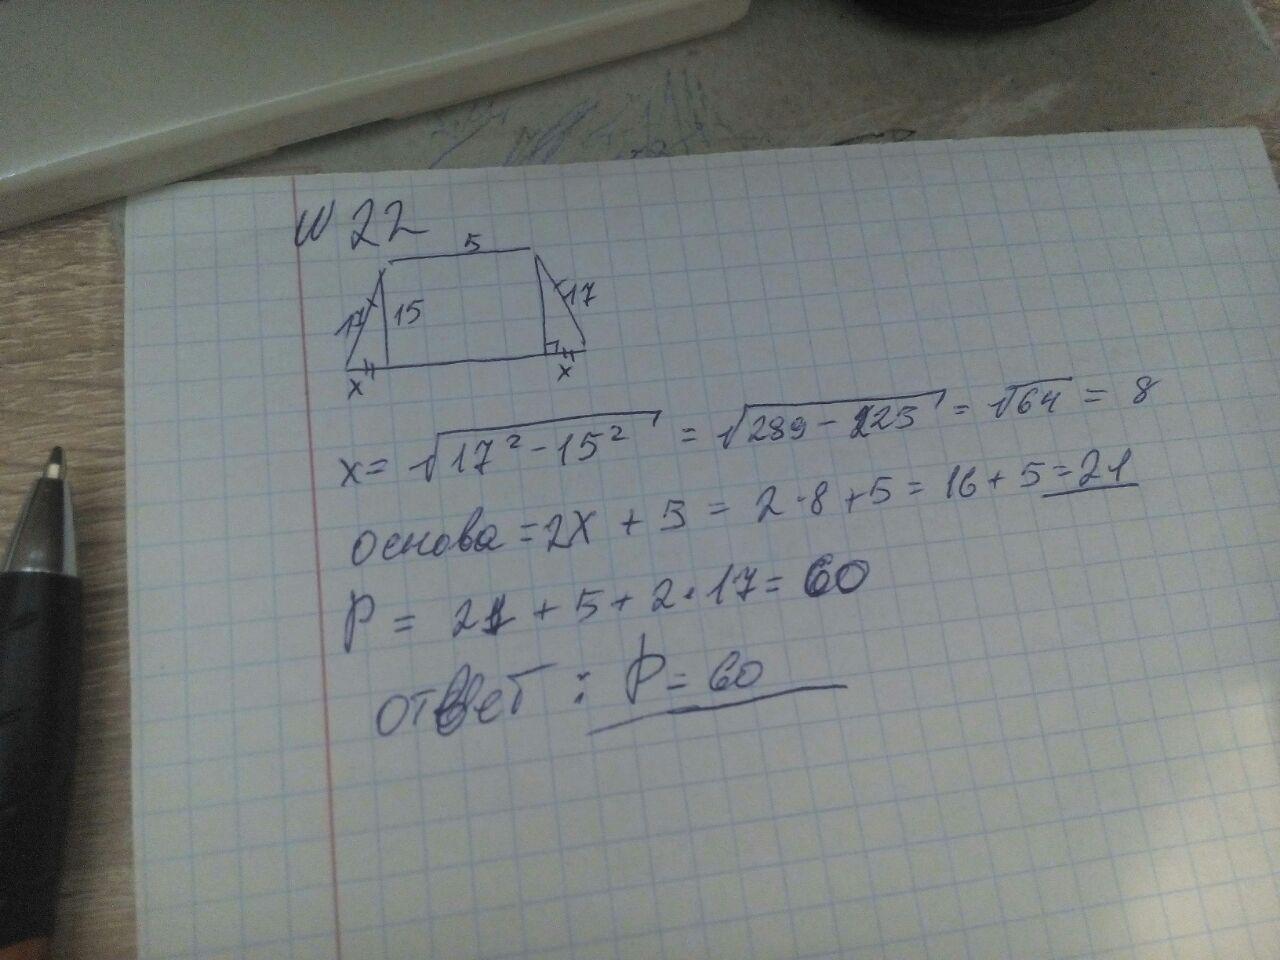 № 22
5
17 15 17
x x
x = √17² - 15² = √289 - 225 = √64 = 8
основа = 2x + 5 = 2 · 8 + 5 = 16 + 5 = 21
P = 21 + 5 + 2 · 17 = 60
ответ : P = 60